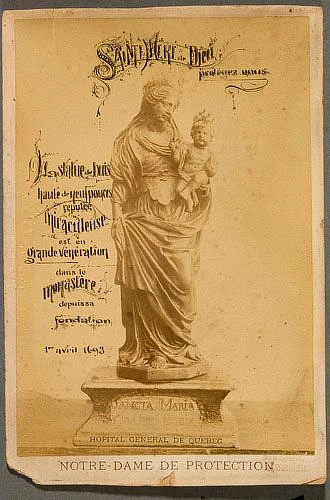 SAINTE MERE de Dieu
protégez nous.
La statue de buis
haute de neuf pouces
réputée
miraculeuse
est en
grande vénération
dans le
monastère
depuis sa
fondation
1er avril 1693
SANCTA MARIA
HOPITAL GENERAL DE QUEBEC
NOTRE-DAME DE PROTECTION